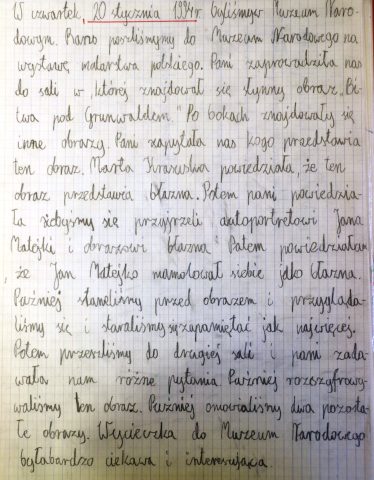 W czwartek, 20 stycznia 1994r. byliśmy w Muzeum Naro-
dowym. Rano poszliśmymy do Muzeum Narodowego na
wystawę malarstwa polskiego. Pani zaprowadziła nas
do sali w której znajdował się słynny obraz „Bi-
twa pod Grunwaldem." Po bokach znajdowały się
inne obrazy. Pani zapytała nas kogo przedstawia
ten obraz. Marta powiedziała, że ten
obraz przedstawa błazna. Potem pani powiedzia-
ła żebyśmy się przyjrzeli autoportretowi Jana
Matejki i obrazowi błazna. Potem powiedziałam
że Jan Matejko namolował siebie jako błazna.
Puźniej staneliśmy przed obrazem i przygląda-
liśmy się i staraliśmy się zapamiętać jak najwięcej.
Potem przeszliśmy do drugiej sali i pani zada-
wała nam różne pytania. Puźniej rozszyfrowy-
waliśmy ten obraz. Puźniej omowialiśmy dwa pozosta-
łe obrazy. Wycieczka do Muzeum Narodowego
była bardzo ciekawa i interesująca.